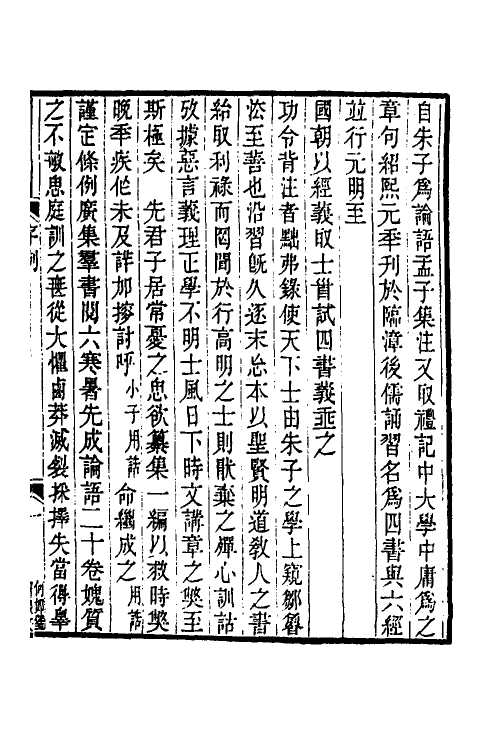 自朱子爲論語孟子集注又取禮記中大學中庸爲之
章句紹熙元年刊於臨漳後儒誦習名爲四書與六經
竝行元明至
國朝以經義取士首試四書義垂之
功令背注者黜弗錄使天下士由朱子之學上窺鄒魯
法至善也沿習旣久逐末忘本以聖賢明道敎人之書
紿取利祿而罔閒於行高明之士則厭棄之殫心訓詁
攷據惡言義理正學不明士風日下時文講章之獘至
斯極矣 先君子居常憂之思欲纂集一編以救時獘
晚年疾作未及詳加撡討呼小子用誥命繼成之用誥
謹定條例廣集羣書閱六寒暑先成論語二十卷媿質
之不敏思庭訓之𦽦從大懼鹵莽滅裂採擇失當得舉
序例
一